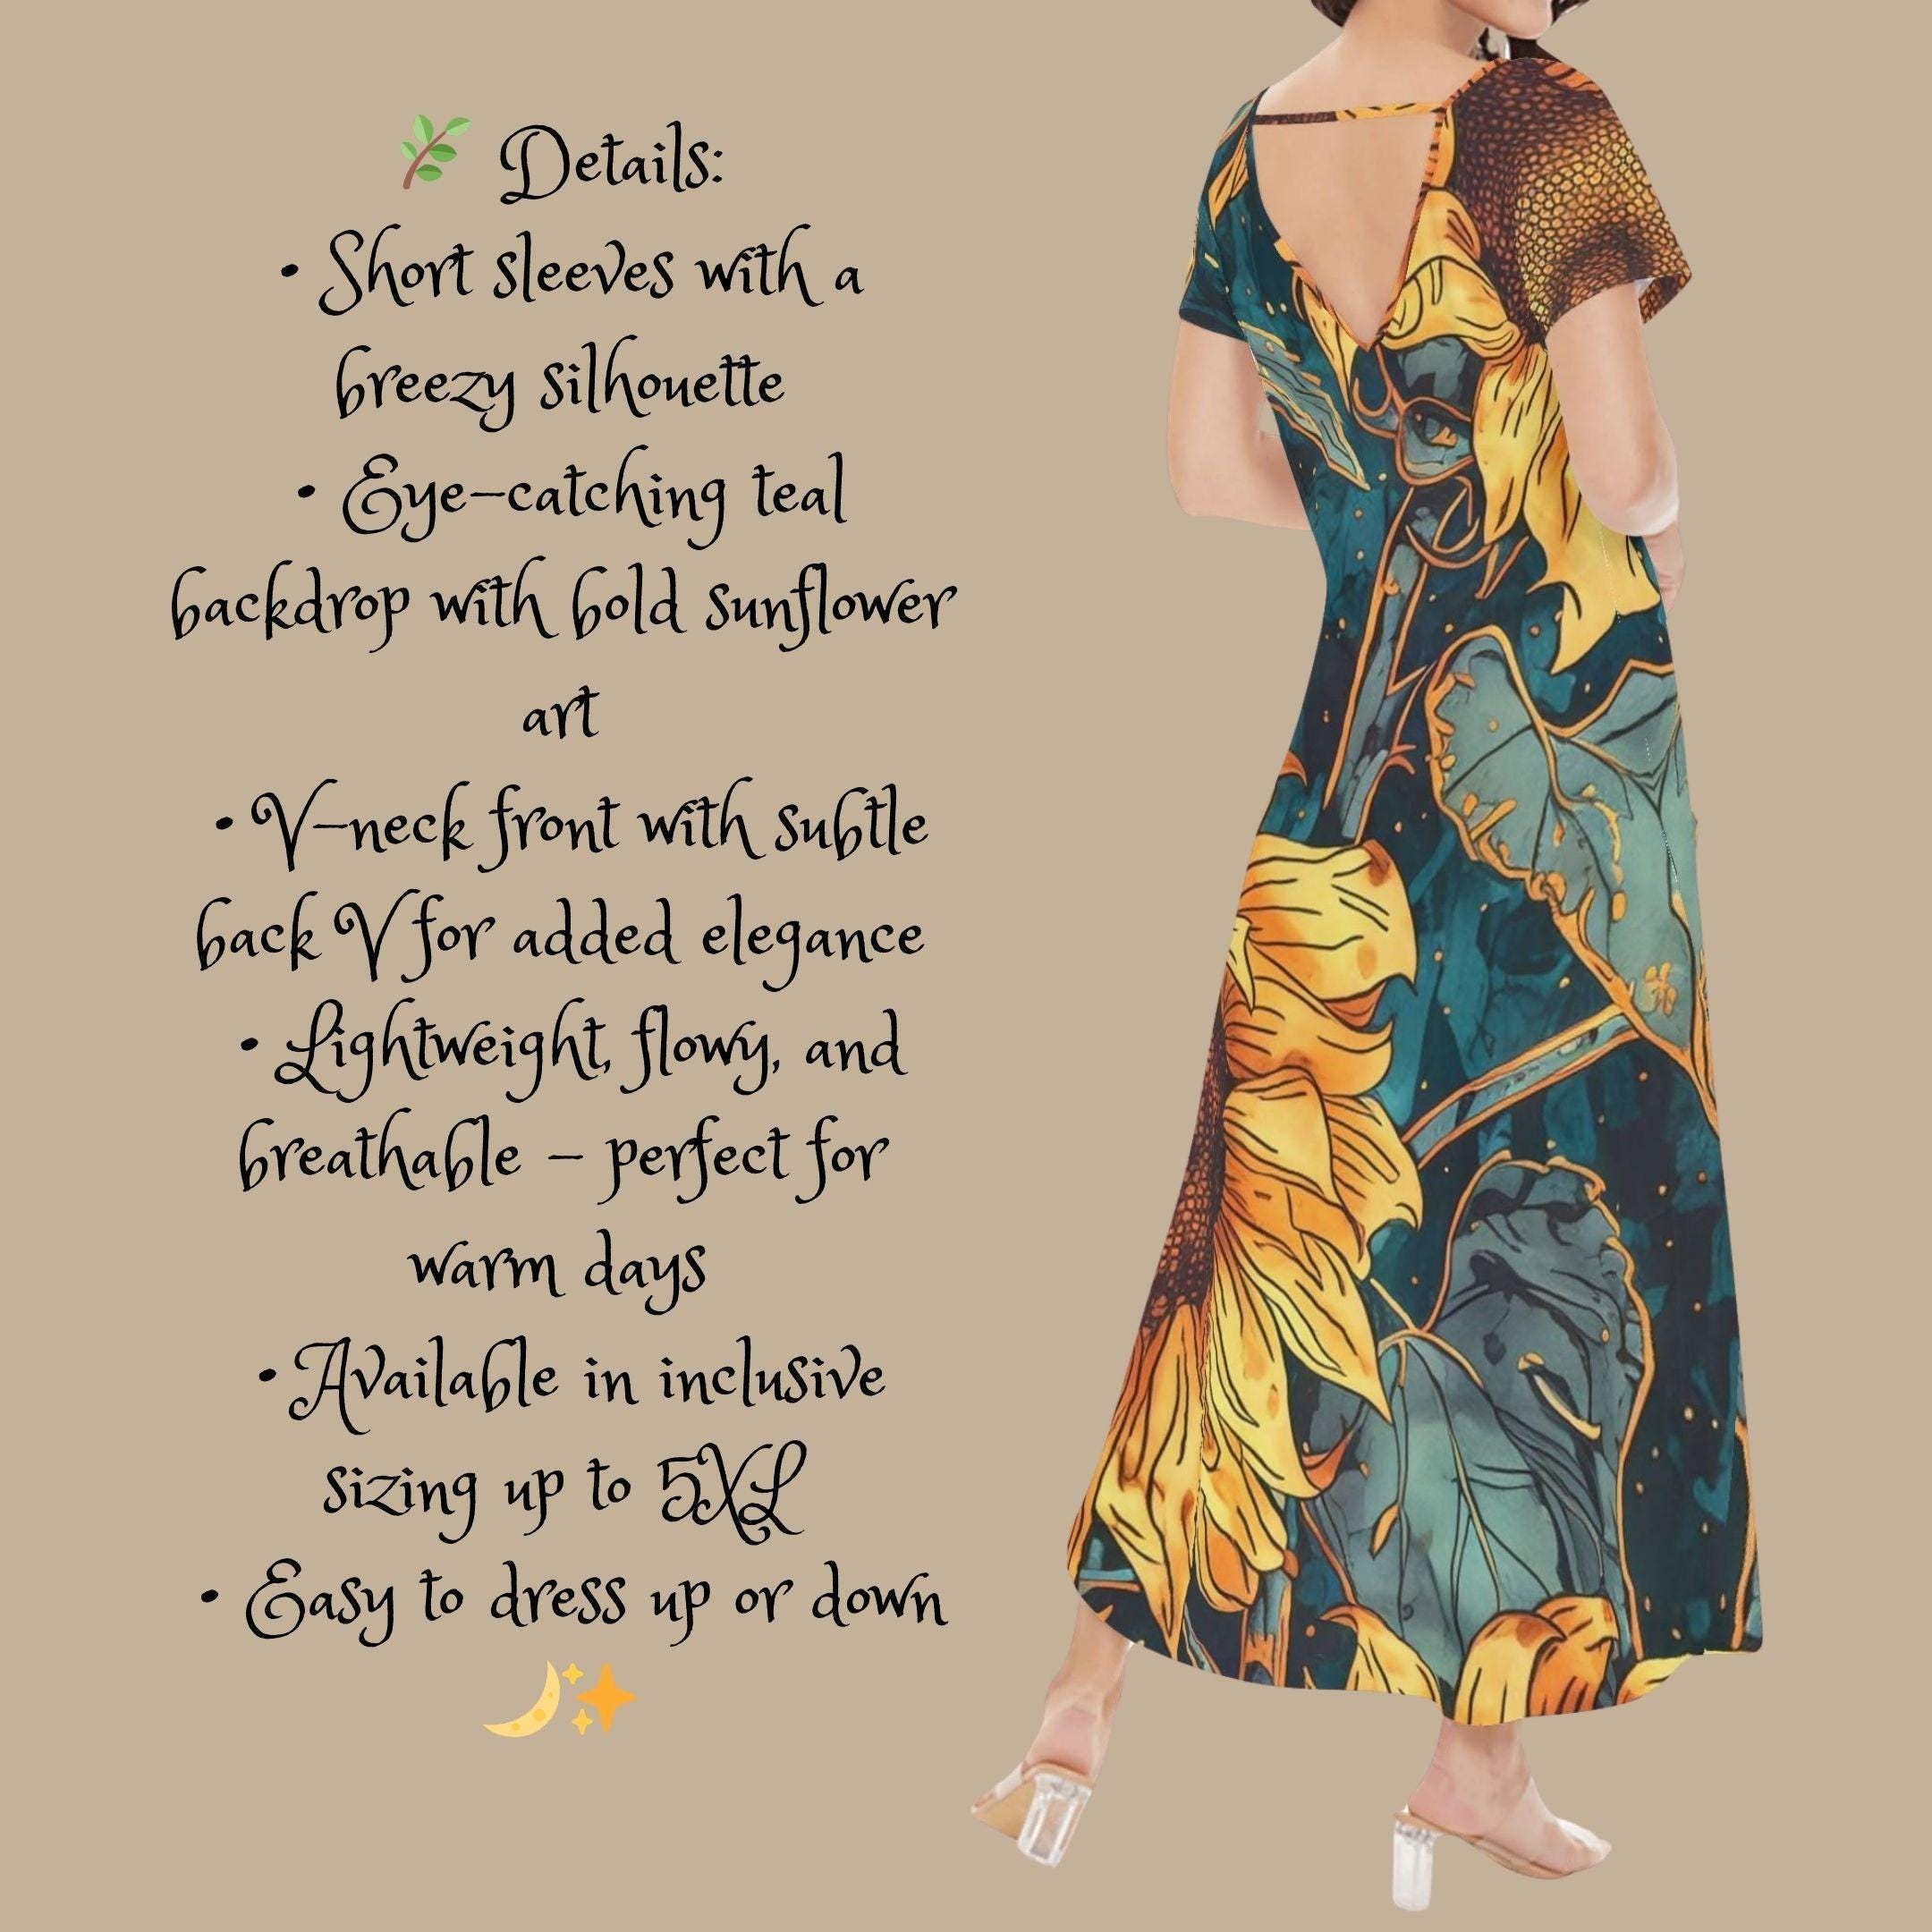 🌿 Details:
• Short sleeves with a
breezy silhouette
• Eye-catching teal
backdrop with bold sunflower
art
• V-neck front with subtle
back V for added elegance
• Lightweight, flowy, and
breathable – perfect for
warm days
• Available in inclusive
sizing up to 5XL
• Easy to dress up or down
🌙✨